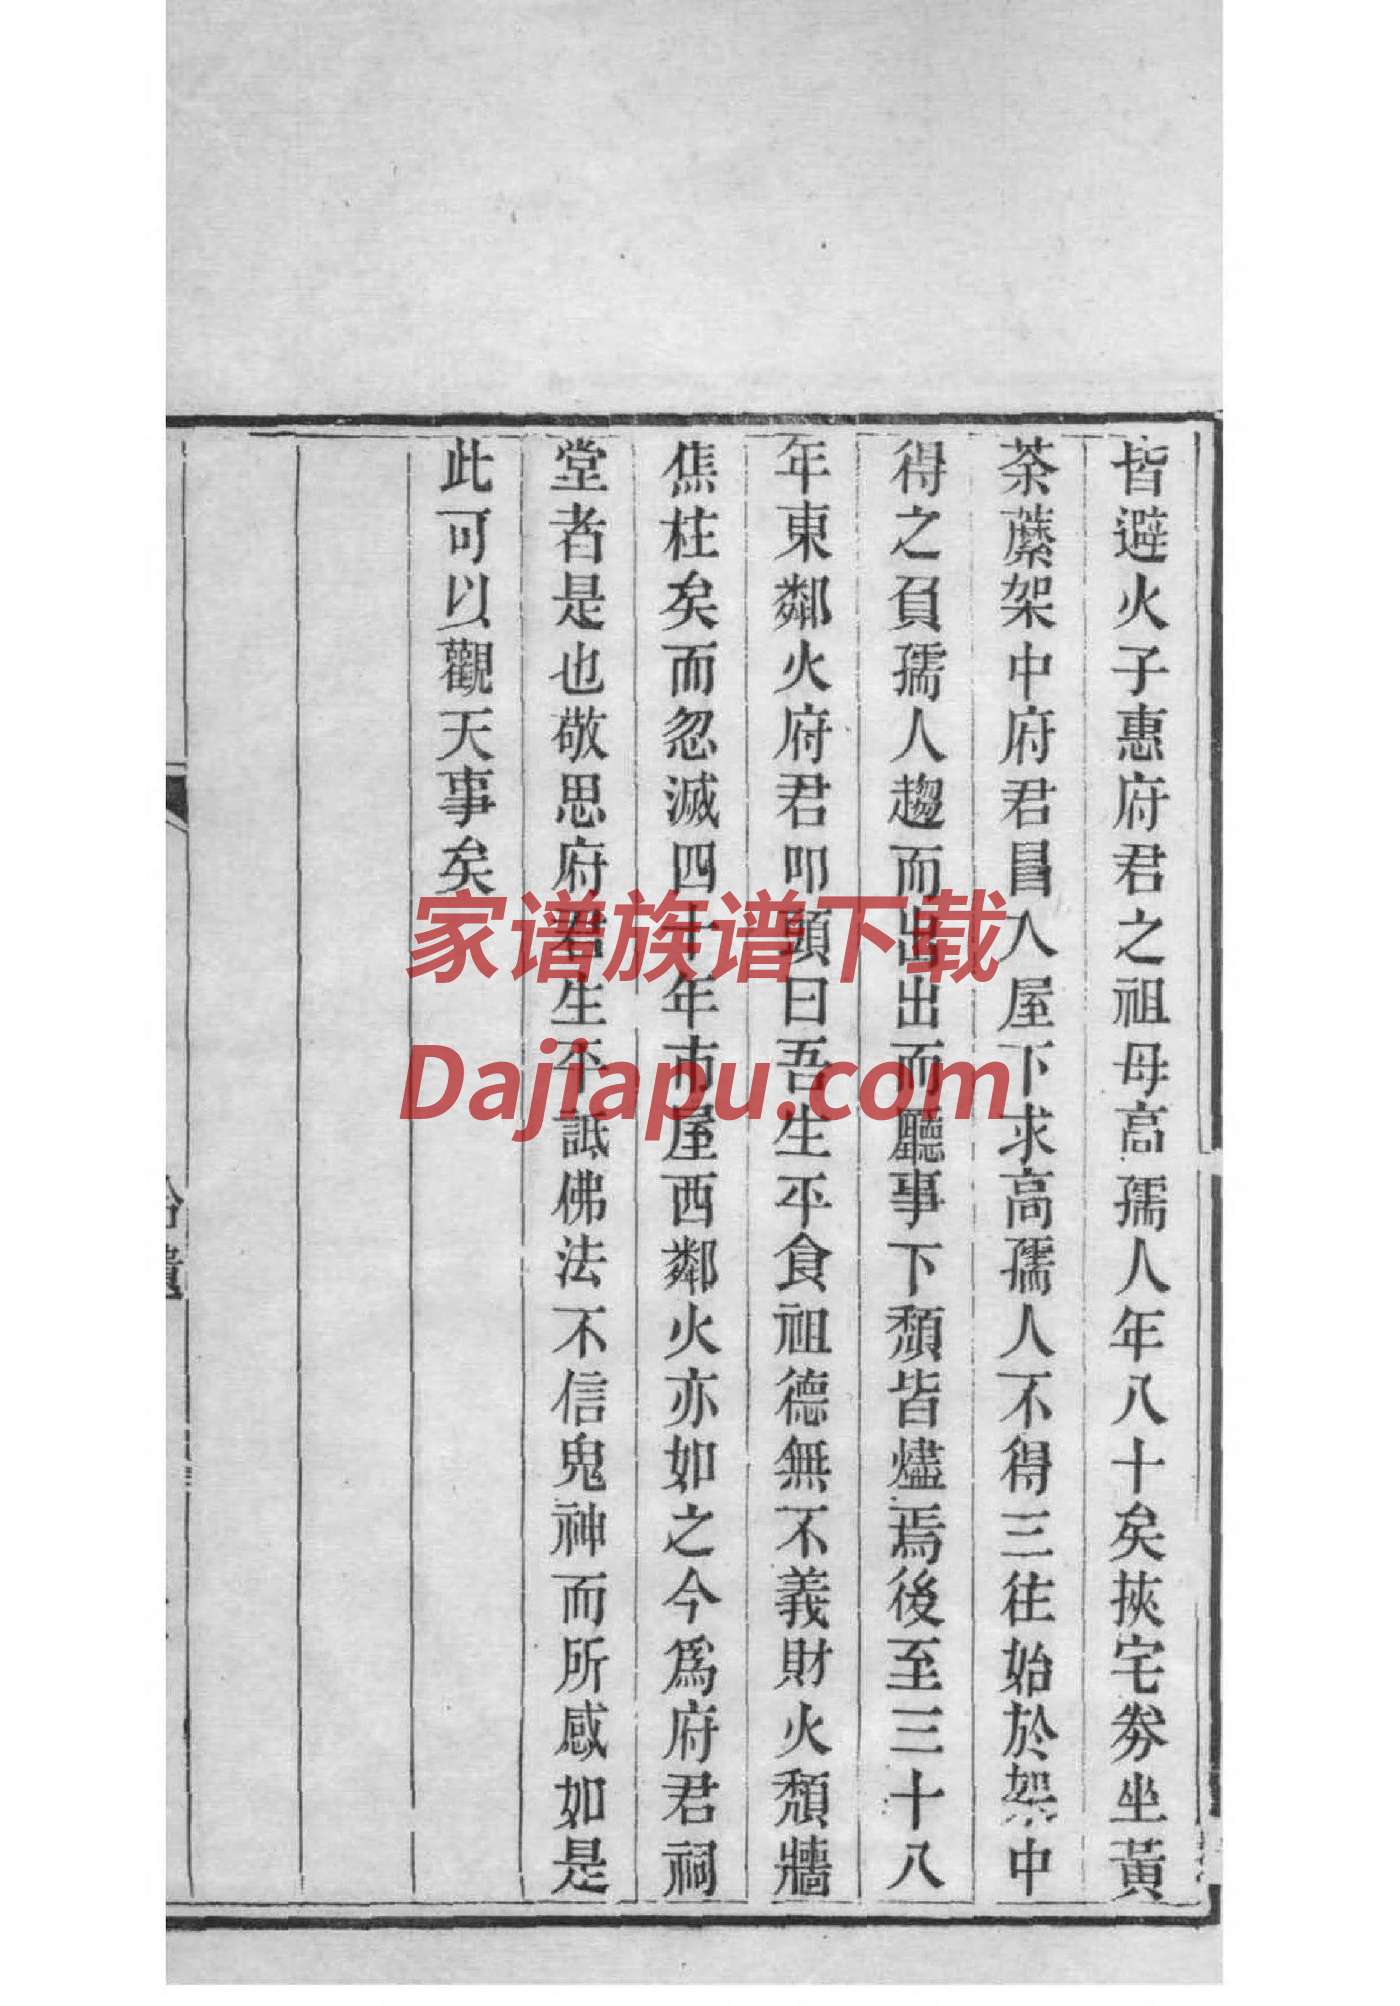 皆避火子惠府君之祖母高孺人年八十矣挾宅券坐黃
荼蘼架中府君冒入屋下求高孺人不得三往始於架中
得之負孺人趨而出出而廳事下頽皆燼焉後至三十八
年東鄰火府君叩頭曰吾生平食祖德無不義財火頽牆
焦柱矣而忽滅四十年市屋西鄰火亦如之今爲府君祠
堂者是也敬思府君生不詆佛法不信鬼神而所感如是
此可以觀天事矣
家谱族谱下载
Dajiapu.com